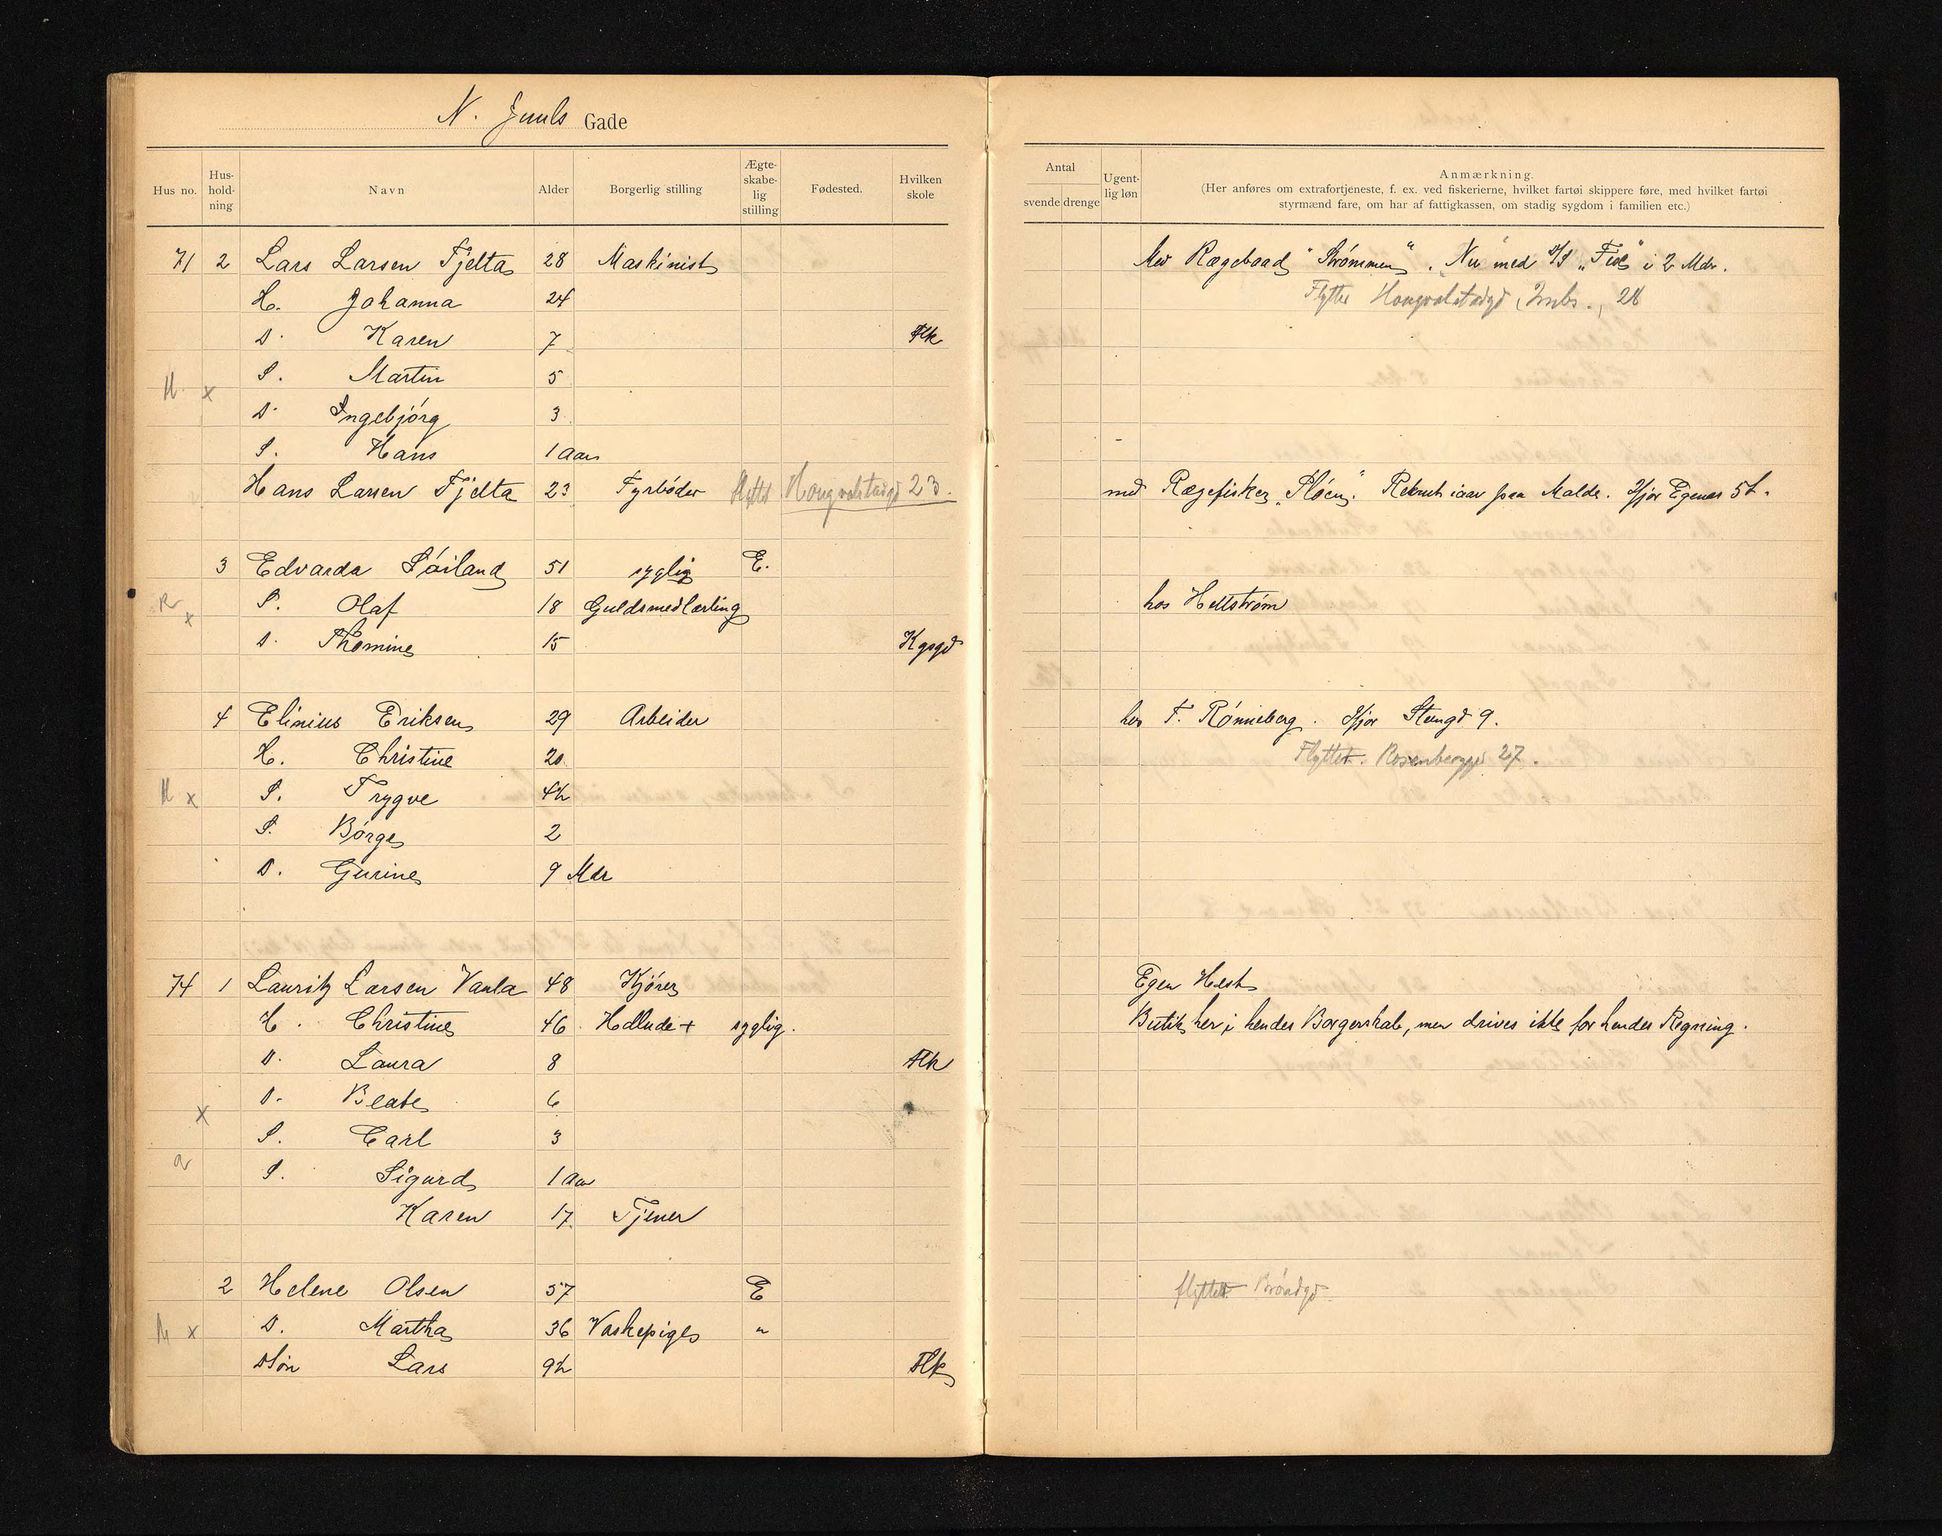 N. Juuls Gade
Hus no. Hus-hold-ning Navn Alder Borgerlig stilling Ægte-skabe-lig stilling Fødested. Hvilken skole
Antal svende drenge Ugent-lig løn Anmærkning.
(Her anføres om extrafortjeneste, f. ex. ved fiskerierne, hvilket fartøi skippere føre, med hvilket fartøi
styrmænd fare, om har af fattigkassen, om stadig sygdom i familien etc.)
71 2 Lars Larsen Fjelta 28 Maskinist Med Rægebaad "Strømmen". Nu med S/S "Fix" i 2 Mdr.
H. Johanna 24 Flytter Hougvalstadgd 28
D. Karen 7 Flk
S. Martin 5
H. x
D. Ingebjørg 3
S. Hans 1 Aar
Hans Larsen Fjelta 23 Fyrbøder flyttet Hougvalstadgd 23. med Rægefisker Rekrut iaar paa Malde. Ifjor Egenæs 54.
3 Edvarda Søiland 51 syglig E.
x S. Olaf 18 Guldsmedlærling hos Hellstrøm
D. Thomine 15 Kgsgd
4 Elinius Eriksen 29 Arbeider hos F. Rønneberg. Ifjor Stengd 9.
H. Christine 20 Flyttet. Rosenberggd 27.
H x S. Trygve 4½
S. Børge 2
D. Gurine 9 Mdr
74 1 Lauritz Larsen Vaula 48 Kjører Egen Hest
H. Christine 46 Hdlnde + syglig. Butik her i hendes Borgerskab, men drives ikke for hendes Regning.
D. Laura 8 Flk
D. Beate 6
x
S. Carl 3
a
S. Sigurd 1 Aar
Karen 17 Tjener
2 Helene Olsen 57 E flyttet Brøndgd
x D. Martha 36 Vaskepige "
DSøn Lars 9½ Flk